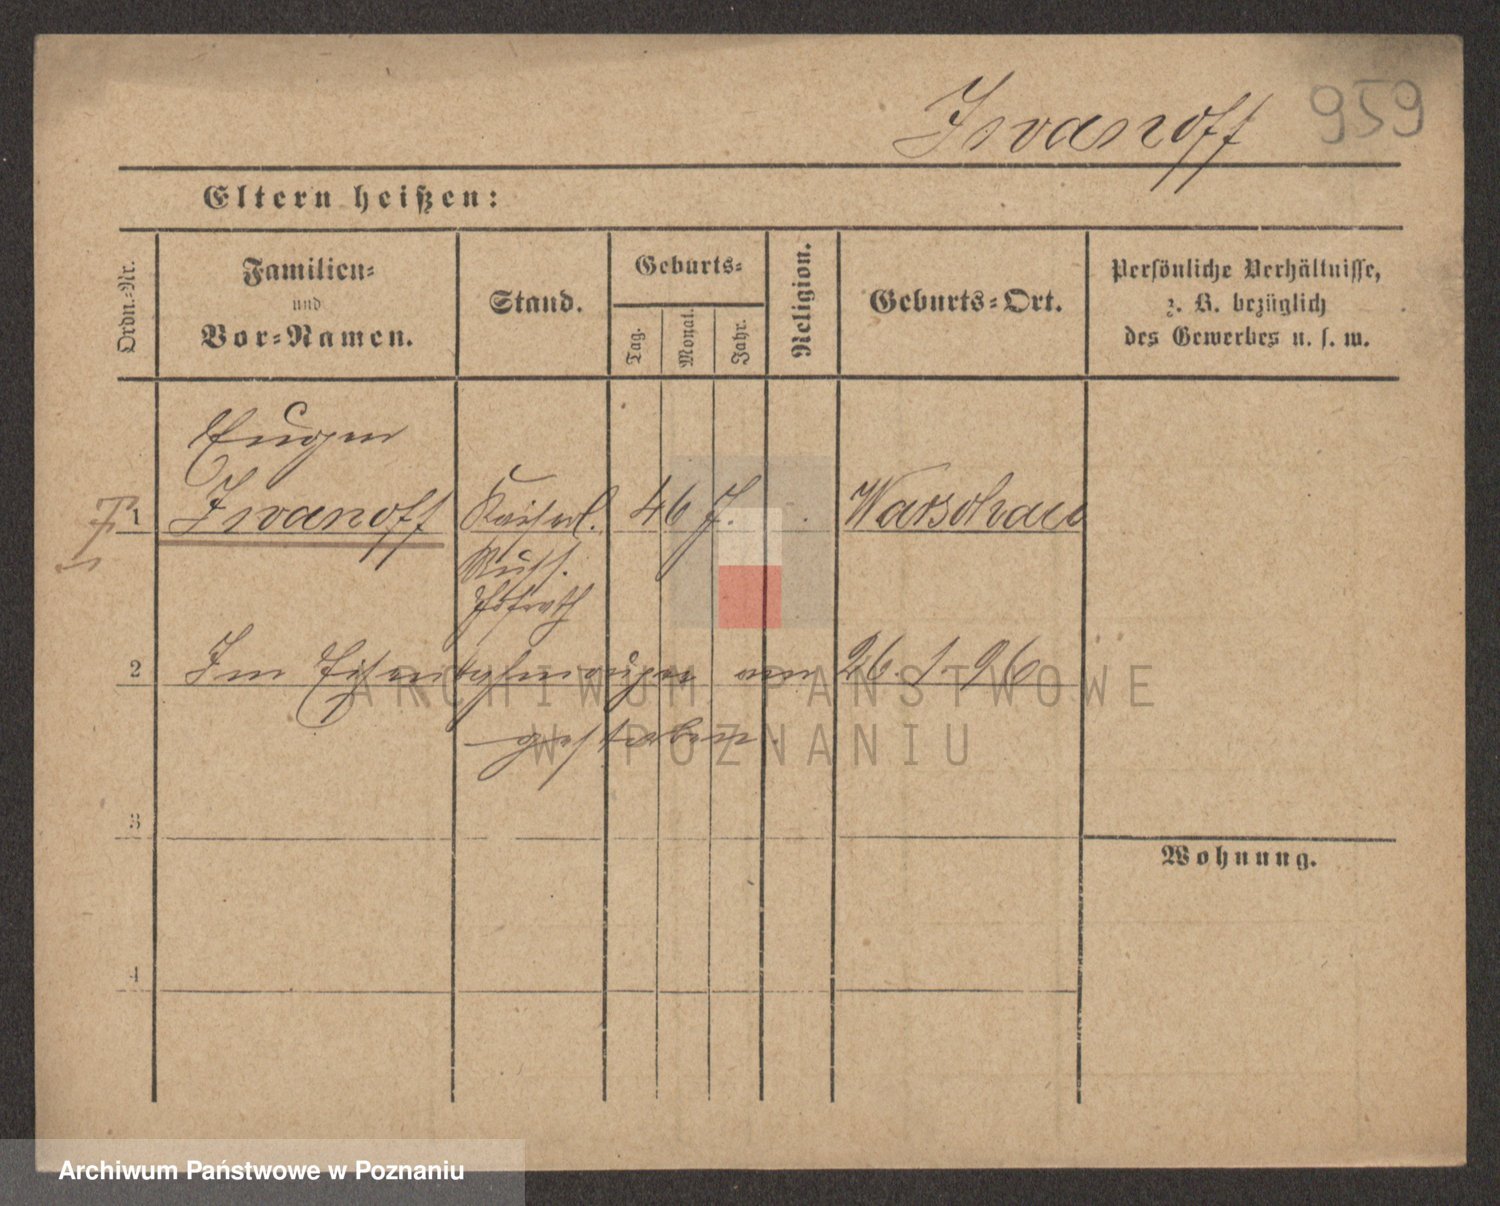 Iwanoff 959
Eltern heißen:
Ordn.-Nr.
Familien-
und
Vor-Namen.
Stand.
Geburts-
Tag.
Monat.
Jahr.
Religion.
Geburts-Ort.
Persönliche Verhältnisse,
z. B. bezüglich
des Gewerbes u. s. w.
Eugen
1 Iwanoff Kaiserl. 46 J. Warschau
Russ.
Hofrath
2 Im Eisenbahnwagen am 26. 1. 96
gestorben.
3
Wohnung.
4
ARCHIWUM PAŃSTWOWE
W POZNANIU
Archiwum Państwowe w Poznaniu